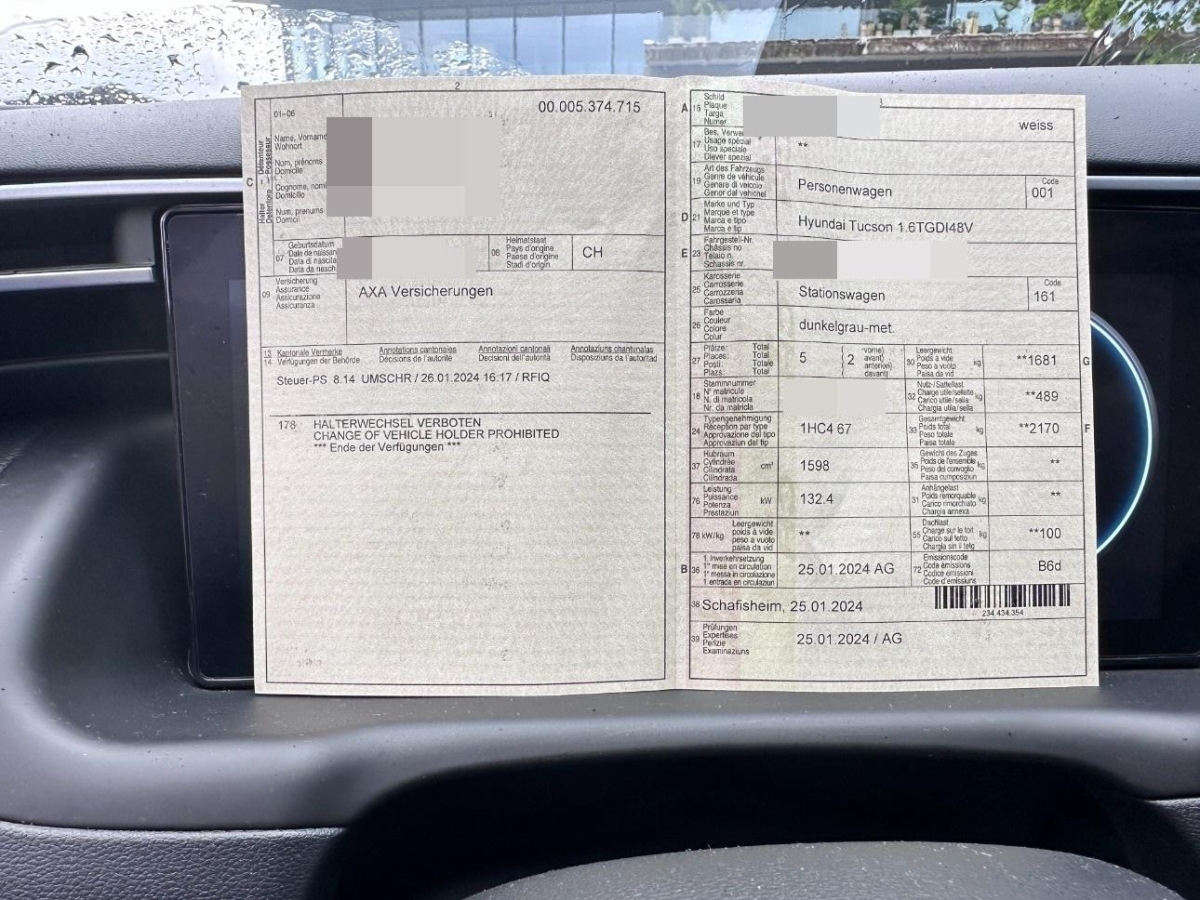 2
00.005.374.715
01-06
C
Halter Détenteur
Detentore Possessur
Name, Vorname
Wohnort
Nom, prénoms
Domicile
Cognome, nomi
Domicilio
Num, prenums
Domicil
07
Geburtsdatum
Date de naissan
Data di nascita
Data da nasch
08
Heimatstaat
Pays d'origine
Paese d'origine
Stadi d'origin
CH
09
Versicherung
Assurance
Assicurazione
Assicuranza
AXA Versicherungen
13 Kantonale Vermerke Annotations cantonales Annotazioni cantonali Annotaziuns chantunalas
14 Verfügungen der Behörde Décisions de l'autorité Decisioni dell'autorità Disposiziuns da l'autoritad
Steuer-PS 8.14 UMSCHR / 26.01.2024 16:17 / RFIQ
178 HALTERWECHSEL VERBOTEN
CHANGE OF VEHICLE HOLDER PROHIBITED
*** Ende der Verfügungen ***
A 15
Schild
Plaque
Targa
Numer
weiss
17
Bes. Verwe
Usage spécial
Uso speciale
Diever spezial
**
19
Art des Fahrzeugs
Genre de véhicule
Genere di veicolo
Gener dal vehichel
Personenwagen
Code
001
D 21
Marke und Typ
Marque et type
Marca e tipo
Marca e tip
Hyundai Tucson 1.6TGDI48V
E 23
Fahrgestell-Nr.
Châssis no
Telaio n.
Schassis nr.
25
Karosserie
Carrosserie
Carrozzeria
Carossaria
Stationswagen
Code
161
26
Farbe
Couleur
Colore
Colur
dunkelgrau-met.
27
Plätze: Total
Places: Total
Posti: Totale
Plazs: Total
5
2
vorne)
avant)
anteriori)
davant)
30
Leergewicht
Poids à vide
Peso a vuoto
Paisa da vid
kg
**1681
G
18
Stammnummer
N° matricule
N. di matricola
Nr. da matricla
32
Nutz-/Sattellast
Charge utile/sellette
Carico utile/sella
Chargia utila/sella
kg
**489
24
Typengenehmigung
Réception par type
Approvazione del tipo
Approvaziun dal tip
1HC4 67
33
Gesamtgewicht
Poids total
Peso totale
Paisa totala
kg
**2170
F
37
Hubraum
Cylindrée
Cilindrata
Cilindrada
cm³
1598
35
Gewicht des Zuges
Poids de l'ensemble
Peso del convoglio
Paisa cumposiziun
kg
**
76
Leistung
Puissance
Potenza
Prestaziun
kW
132.4
31
Anhängelast
Poids remorquable
Carico rimorchiato
Chargia annexa
kg
**
78 kW/kg
Leergewicht
poids à vide
peso a vuoto
paisa da vid
**
55
Dachlast
Charge sur le toit
Carico sul tetto
Chargia sin il tetg
kg
**100
B 36
1. Inverkehrsetzung
1re mise en circulation
1a messa in circolazione
1 entrada en circulaziun
25.01.2024 AG
72
Emissionscode
Code émissions
Codice emissioni
Code d'emissiuns
B6d
38 Schafisheim, 25.01.2024
234.434.354
39
Prüfungen
Expertises
Perizie
Examinaziuns
25.01.2024 / AG